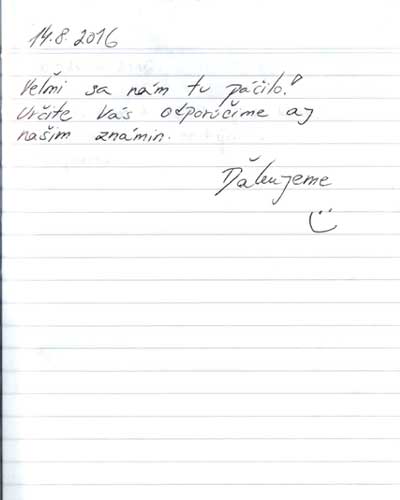 14.8.2016
Veľmi sa nám tu páčilo!
Určite Vás odporúčime aj
našim známin.
Ďakujeme